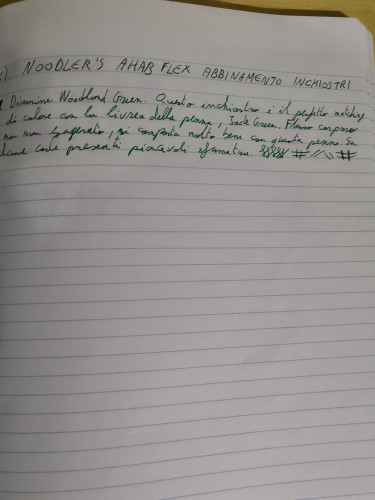 ) NOODLER'S AHAB FLEX ABBINAMENTO INCHIOSTRI
Diamine Woodland Green. Questo inchiostro è il perfetto matching
di colore con la livrea della penna, Jade Green. Flusso corposo
ma non esagerato, si comporta molto bene con questa penna. Su
carte presenti piacevoli sfumature.